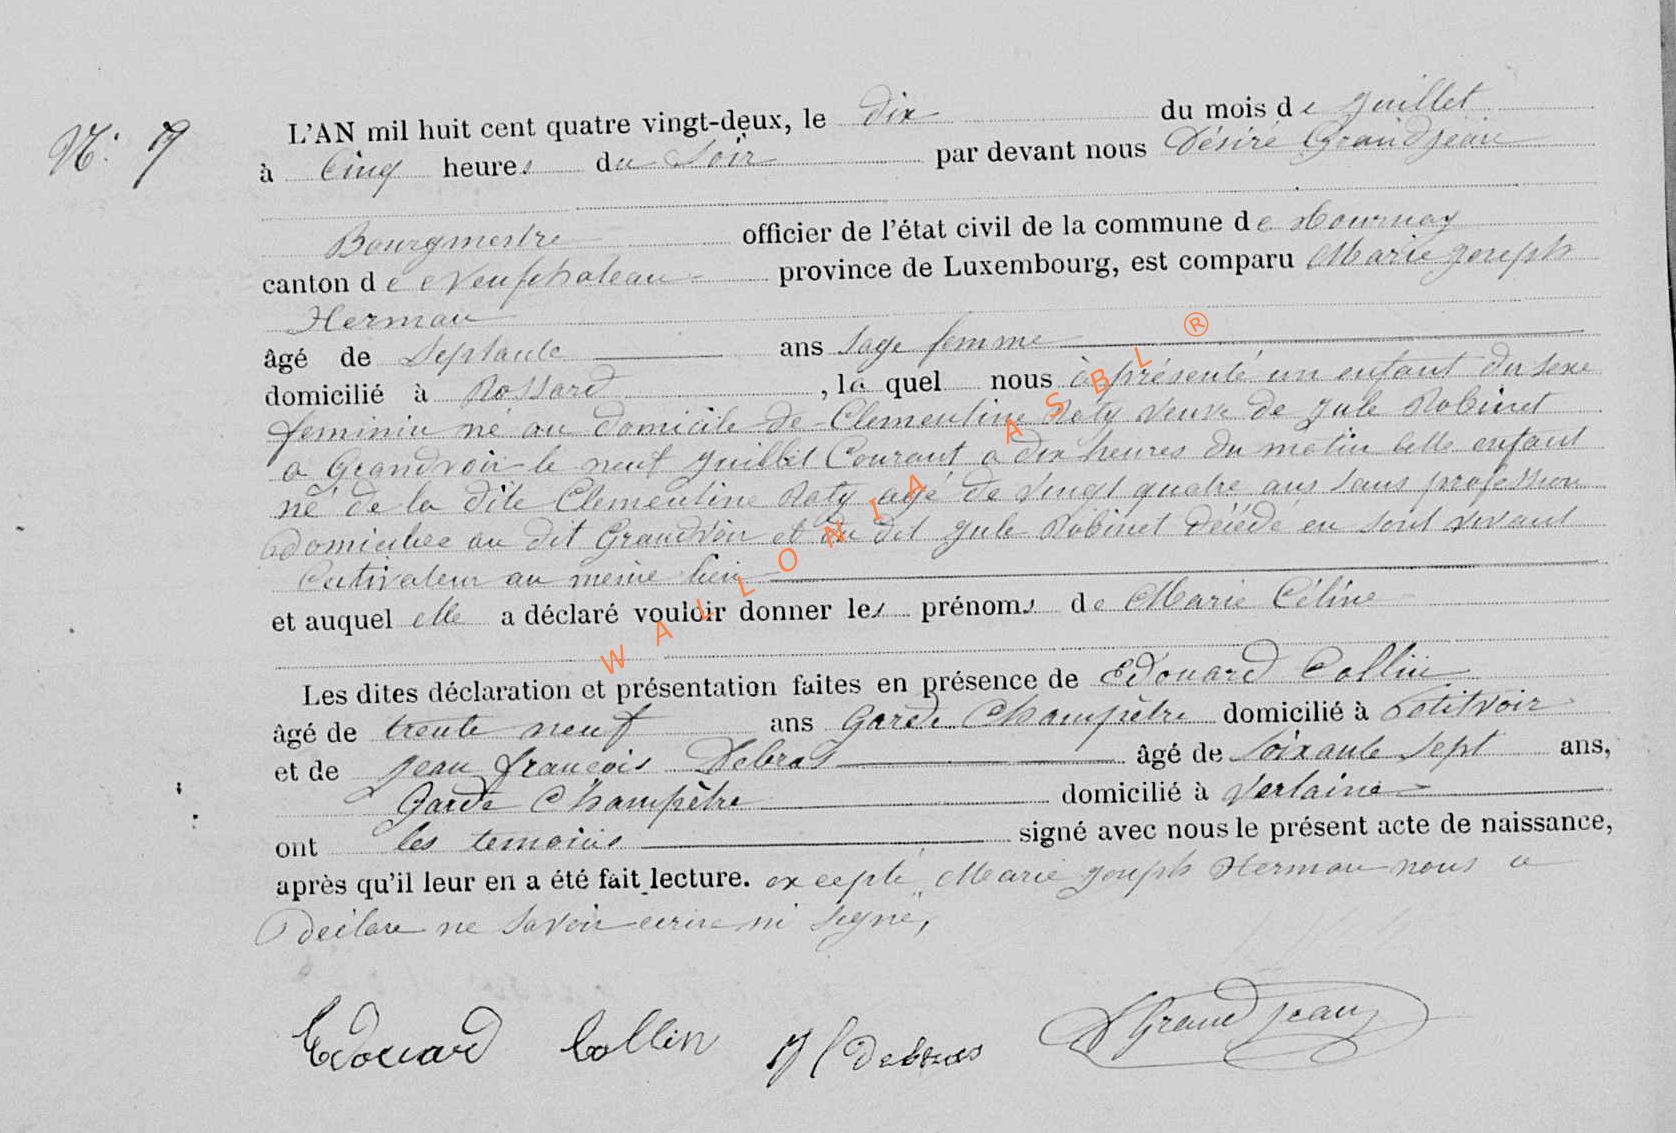 N: 7
L'AN mil huit cent quatre vingt-deux, le dix du mois de Juillet
à Cinq heures du Soir par devant nous Désiré Grandjean
Bourgmestre officier de l'état civil de la commune de Tournay
canton de Neufchateau province de Luxembourg, est comparu Marie Joseph
Herman
âgé de Septante ans Sage femme
domicilié à Rossard, la quel nous à présenté un enfant du sexe
feminin né au domicile de Clementine Roty veuve de Jule Robinet
a Grandvoir le neuf Juillet Courant a dix heures du matin celle enfant
né de la dite Clementine Roty agé de vingt quatre ans sans profession
Domiciliee au dit Grandvoir et du dit Jule Robinet Décédé en sont vivant
Cultivateur au meme lieu
et auquel elle a déclaré vouloir donner les prénoms de Marie Céline
Les dites déclaration et présentation faites en présence de Edouard Collin
âgé de trente neuf ans Garde Champêtre domicilié à Petitvoir
et de Jean François Debras âgé de Soixante Sept ans,
Garde Champêtre domicilié à Verlaine
ont les temoins signé avec nous le présent acte de naissance,
après qu'il leur en a été fait lecture. excepté Marie Joseph Herman nous a
Declare ne Savoir ecrire ni Signé,
Edouard Collin J f Debras D Grandjean
WALLONIA ASBL ®